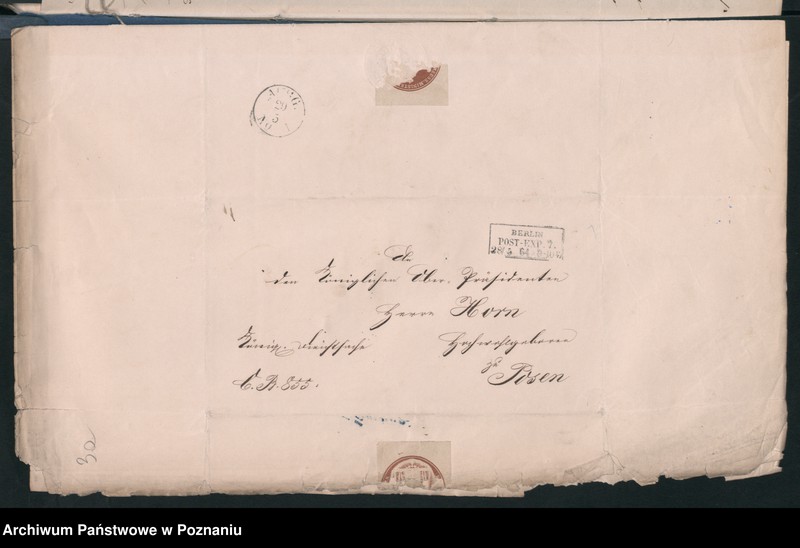 AUSG.
20
5
BERLIN
POST-EXP. 7.
28 5 64
An
den Königlichen Ober-Präsidenten
Herrn Horn
Hochwohlgeboren
zu
Posen
Königl. Dienstsache
C. B. 855.
30
Archiwum Państwowe w Poznaniu